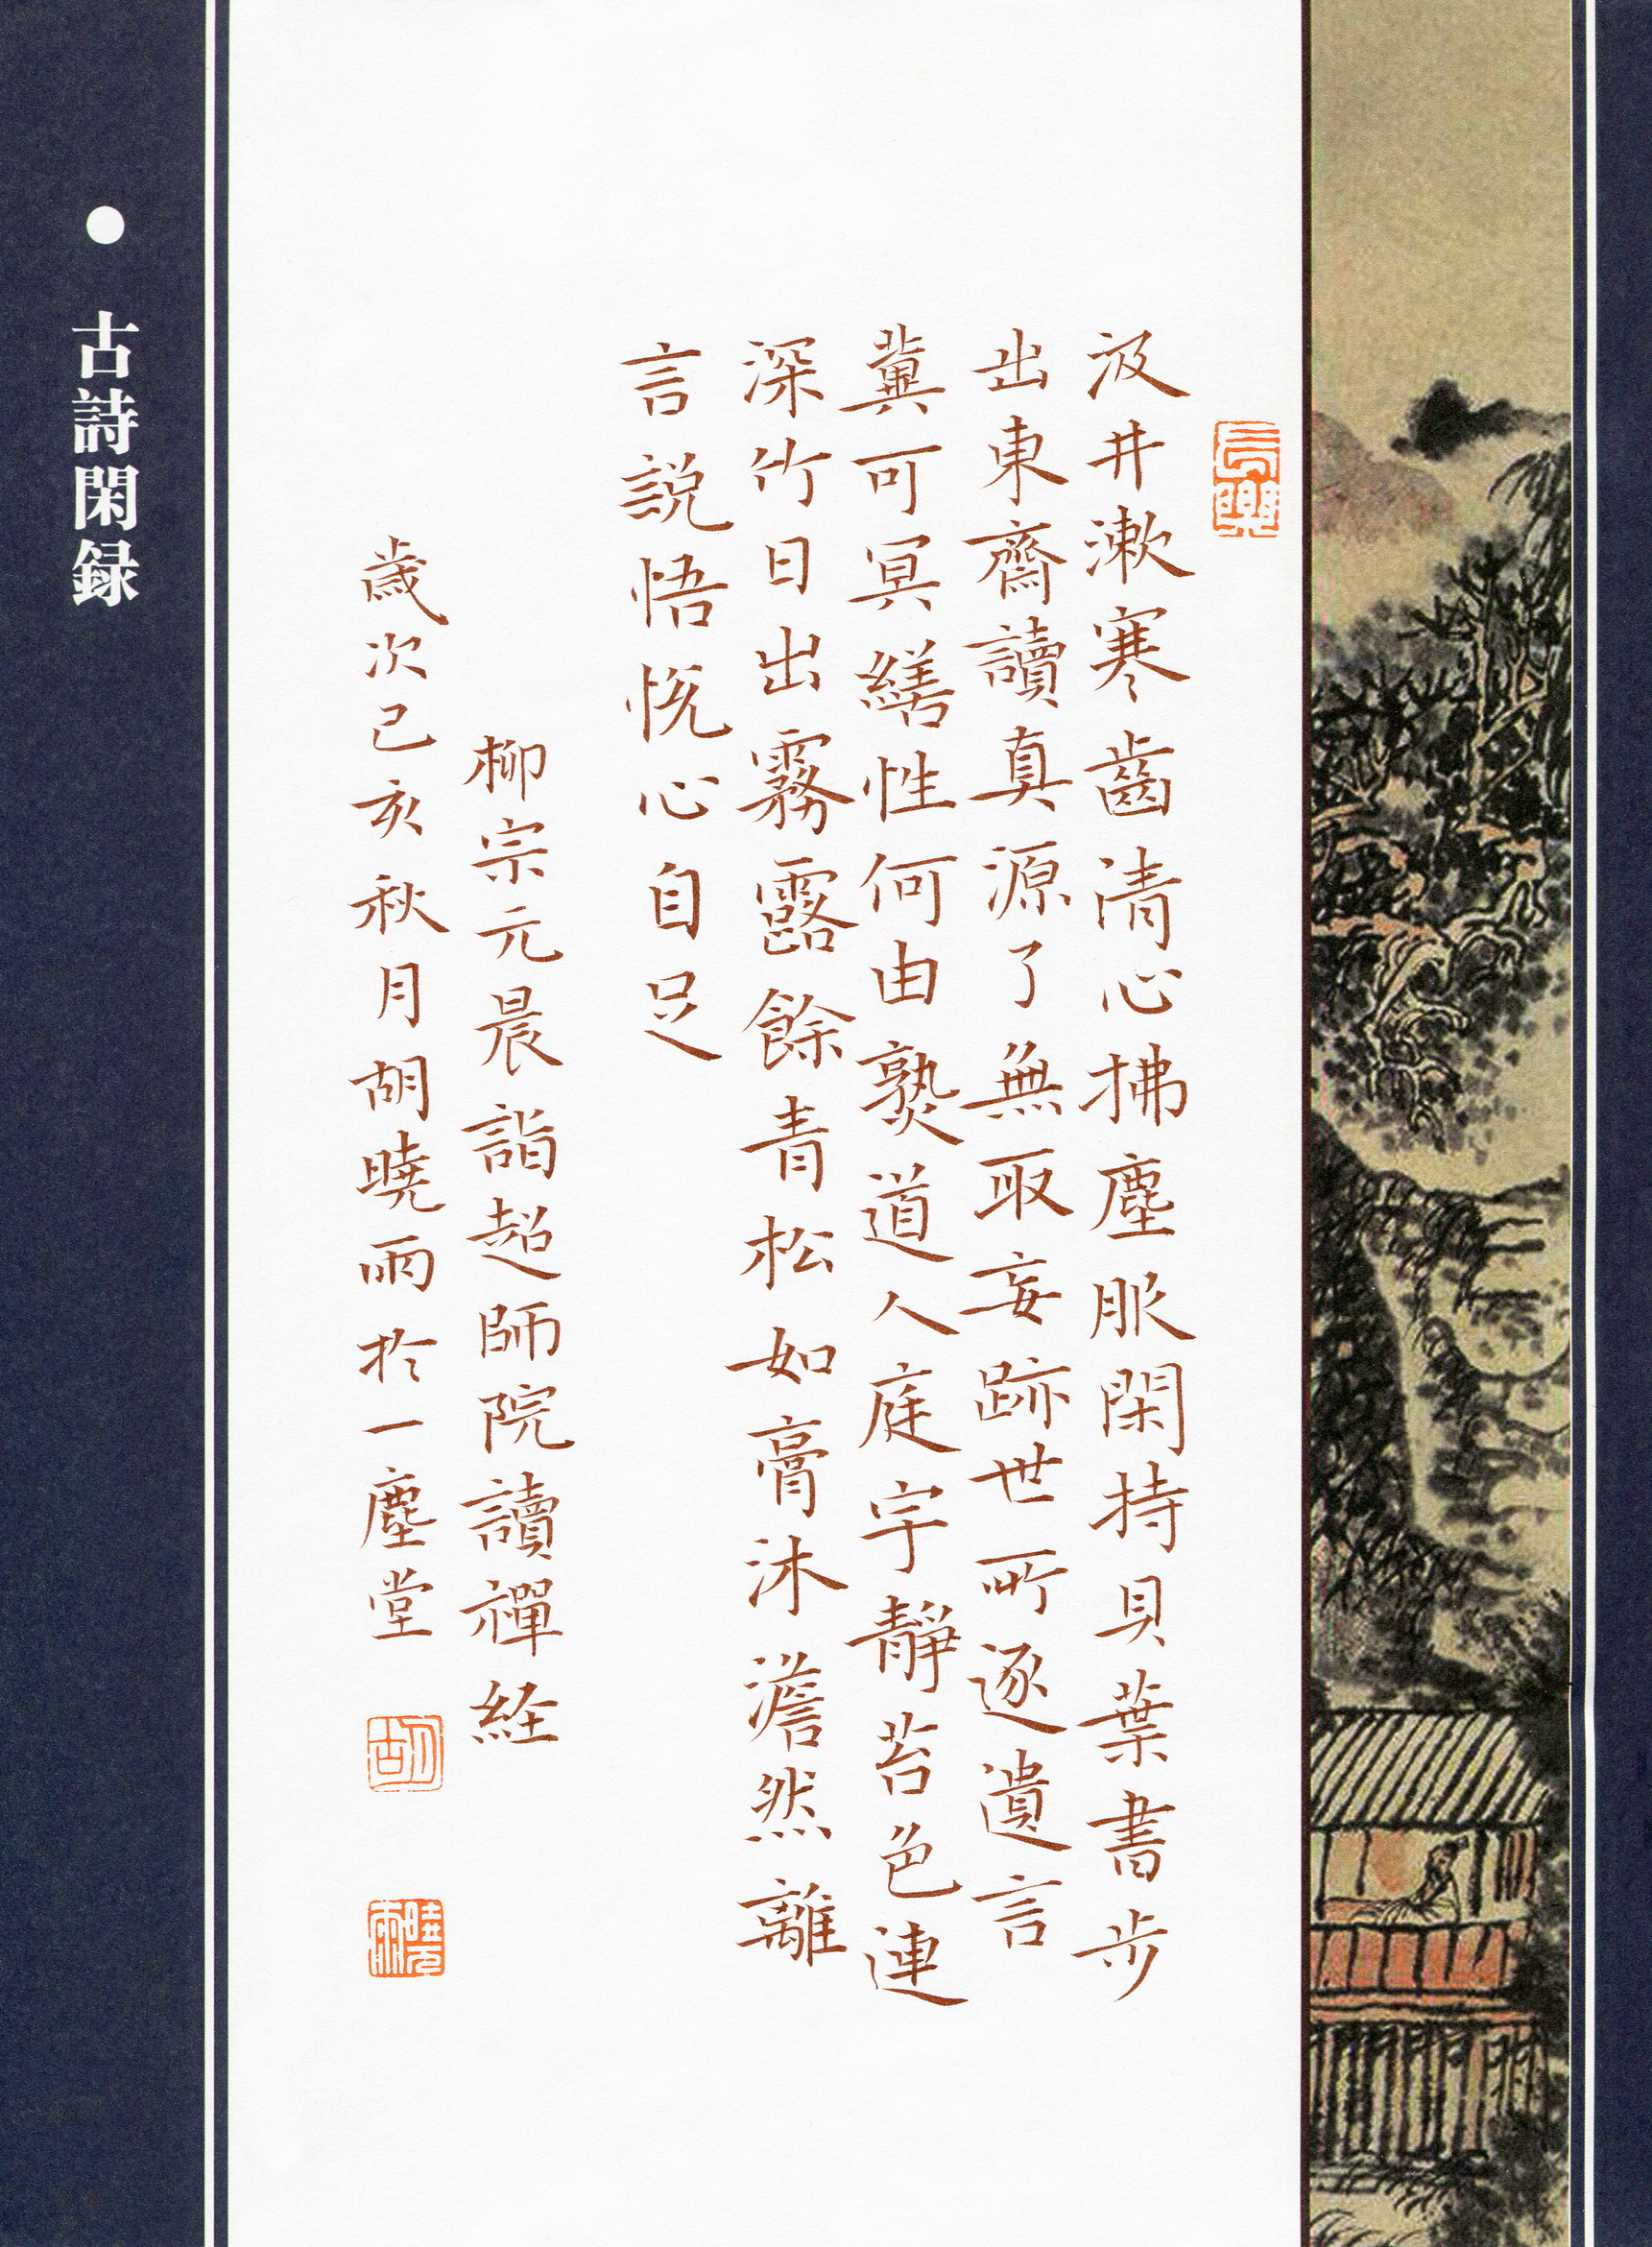 汲井漱寒齒清心拂塵服閑持貝葉書步
出東齋讀真源了無取妄跡世所逐遺言
冀可冥繕性何由熟道人庭宇靜苔色連
深竹日出霧露餘青松如膏沐澹然離
言説悟悅心自足
柳宗元晨詣超師院讀禪経
歲次己亥秋月胡曉雨於一塵堂
胡
曉雨
● 古詩閑録